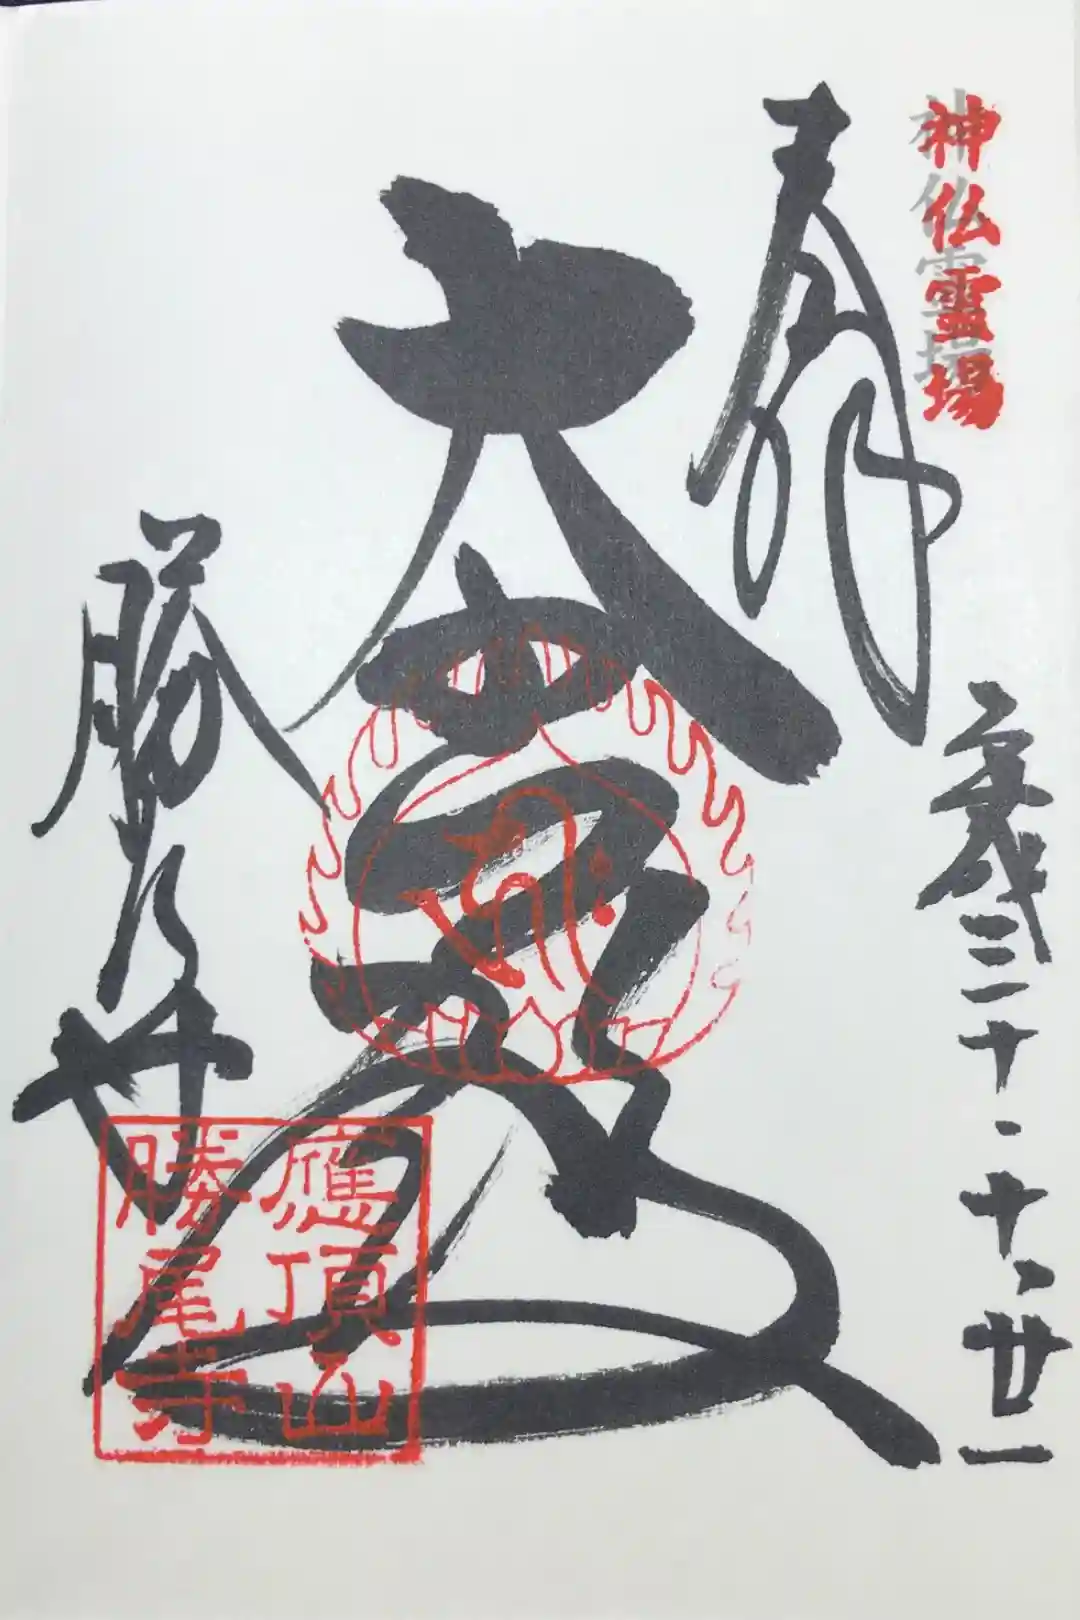 神仏霊場
奉拝
平成三十・十、廿一
大悲殿
勝尾寺
應頂山
勝尾寺